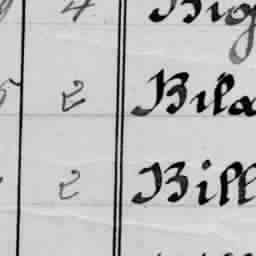 4 Big
2 Bila
2 Bill